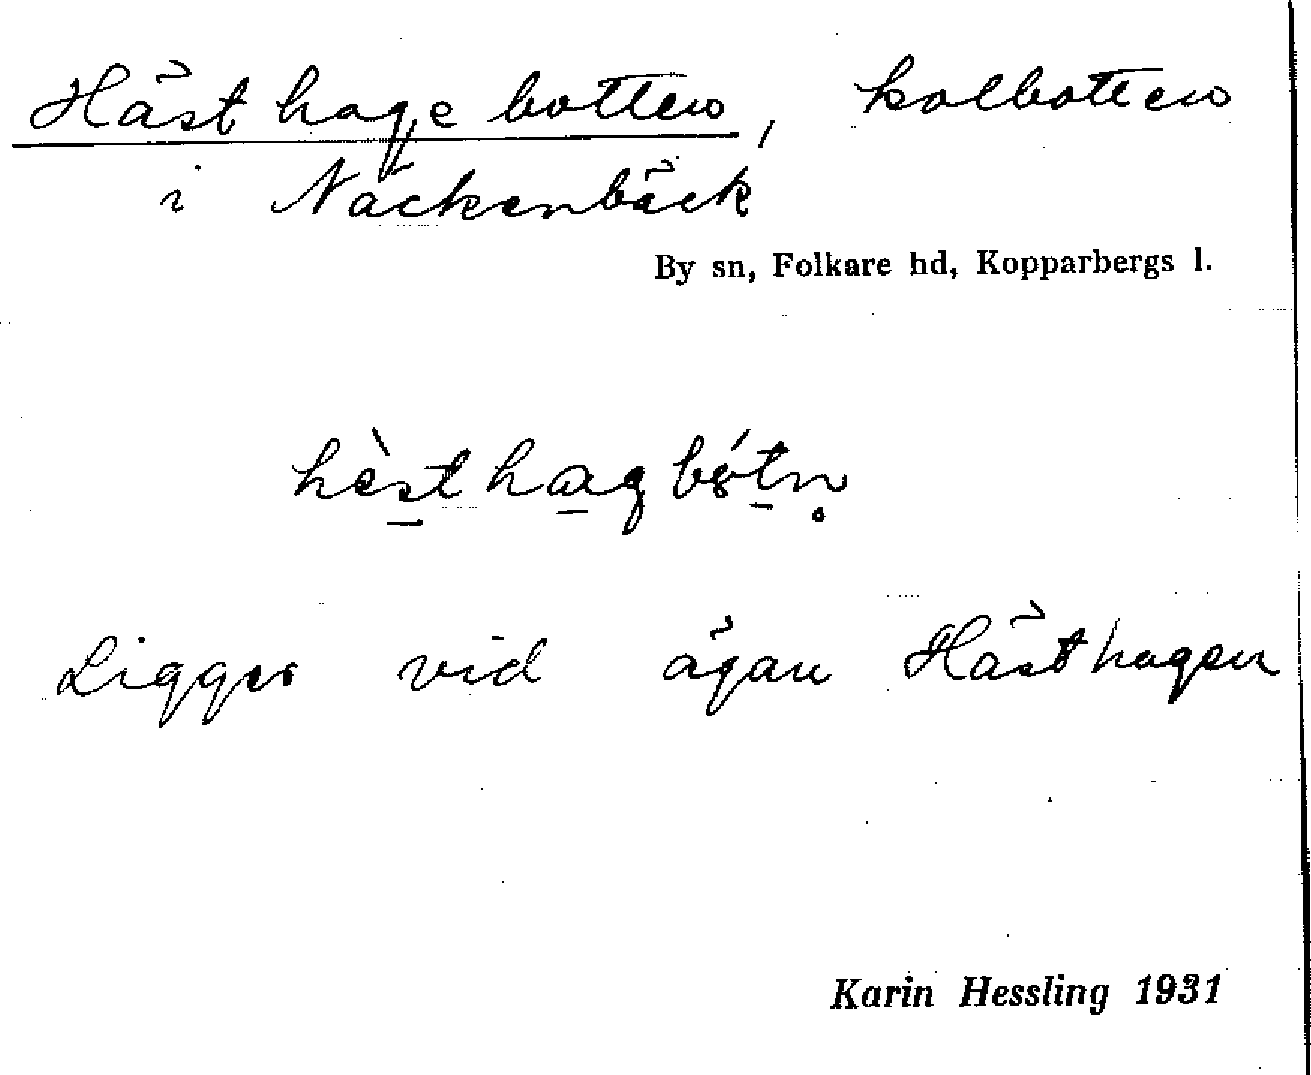 Hästhagebotten, kolbotten
i Näckenbäck
By sn, Folkare hd, Kopparbergs l.
hὲst hag bótn̥
Ligger vid ägan Hästhagen
Karin Hessling 1931